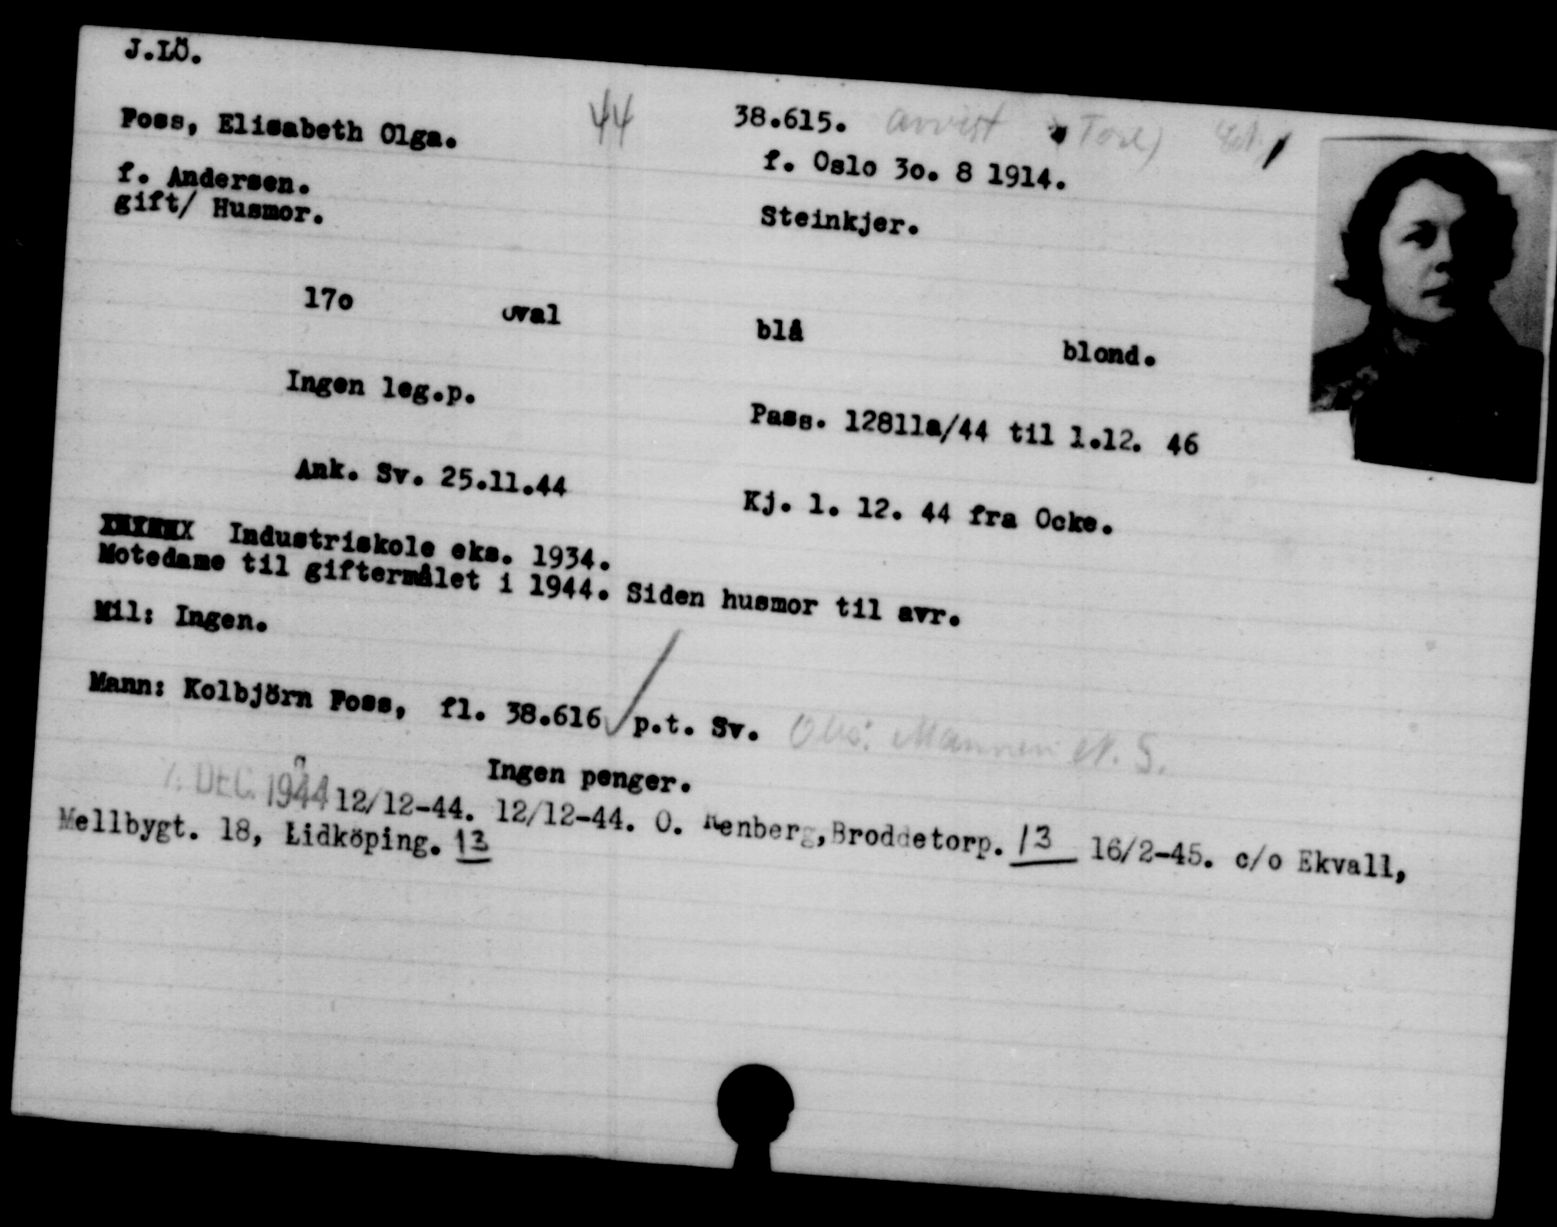 J.LÖ.
Foss, Elisabeth Olga. 44 38.615. avvist
f. Andersen. f. Oslo 3o. 8 1914.
gift/ Husmor. Steinkjer.
17o oval blå blond.
Ingen leg.p. Pass. 12811a/44 til 1.12. 46
Ank. Sv. 25.11.44 Kj. 1. 12. 44 fra Ocke.
Industriskole eks. 1934.
Motedame til giftermålet i 1944. Siden husmor til avr.
Mil: Ingen.
Mann: Kolbjörn Foss, fl. 38.616 p.t. Sv. Obs: Mannen N. S.
Ingen penger.
7. DEC. 1944 12/12-44. 12/12-44. O. Renberg, Broddetorp. 13 16/2-45. c/o Ekvall,
Mellbygt. 18, Lidköping. 13